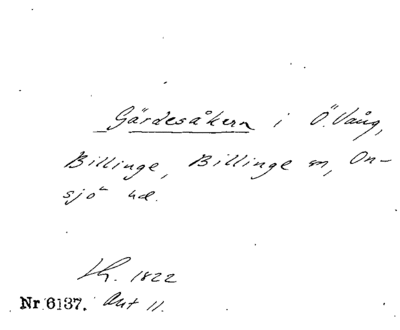 Gärdesåkern i Ö. Vång,
Billinge, Billinge sn, On-
sjö hd.
1822
Nr 6137. Akt 11.